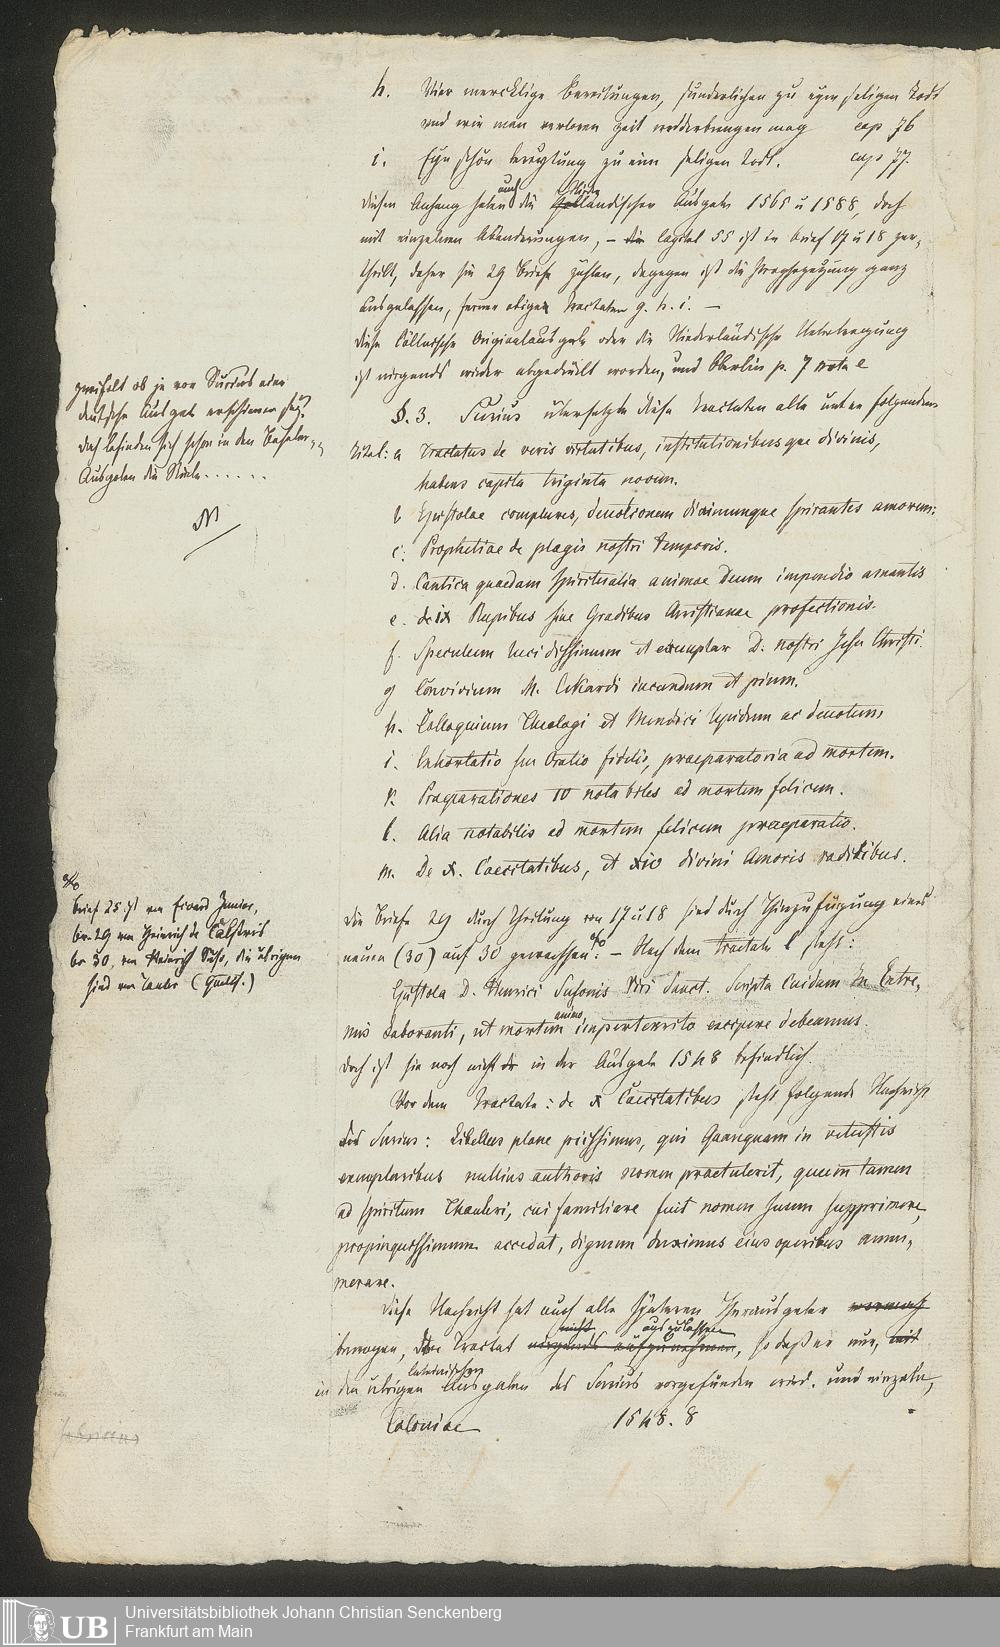 h. Vier mercklige Bereitungen, sunderlichen zu eym seligen Todt
und wie man verloren zeit widderbrengen mag cap 76
i. Eyn schön bereytung zu eim seligen Todt. cap 77.
diesen Anhang haben auch die Holländischen Ausgaben 1565 u 1588, doch
mit einzelnen Abänderungen, – die Capitel 55 ist in Brief 17 u 18 zer-
theilt, daher sie 29 Briefe zählen, dagegen ist die Prophezeyung ganz
ausgelassen, ferner obige Tractaten g. h. i. –
diese Cöllnische Originalausgabe oder die Niederländische Uebertragung
ist nirgends wieder abgedruckt worden, und Oberlin p. 7 nota e
zweifelt ob je von Surius eine
deutsche Ausgabe erschienen sey?
doch befinden sich schon in den Baseler-
Ausgaben die Stücke......
§. 3. Surius übersetzte diese Tractaten alle unter folgendem
Titel: a Tractatus de veris virtutibus, institutionibusque divinis,
habens capita triginta novem.
b Epistolae complures, devotionem divinumque spirantes amorem.
c. Prophetiae de plagis nostri temporis.
d. Cantica quaedam spiritualia animae Deum impendio amantis
e. de ix Rupibus sive Gradibus Christianae profectionis.
f. Speculum lucidissimum et exemplar D. nostri Jesu Christi
g Convivium M. Eckardi iucundum et pium.
h. Colloquium Theologi et Mendici lepidum ac devotum
i. Exhortatio seu Oratio fidelis, praeparatoria ad mortem.
k. Praeparationes IV notabiles ad mortem felicem.
l. Alia notabilis ad mortem felicem praeparatio.
m. De X. Caecitatibus, et xiv divini Amoris radicibus.
die Briefe 29 durch Theilung von 17 u 18 sind durch Hinzufügung eines
neuen (30) auf 30 gewachsen. – Nach dem Tractate l steht:
Brief 25 ist von Eward Junior,
br. 29 von Heinrich de
br 30, von Heinrich Suso, die übrigen
sind von Tauler (Quetif.)
Epistola D. Henrici Susonis Viri Sanct. Scripta Cuidam in Extre-
mis Laboranti, ut mortem animo imperterrito excipere debeamus.
doch ist sie noch nicht in der Ausgabe 1548 befindlich.
Vor dem Tractate: de X Caecitatibus steht folgende Nachricht
des Surius: Libellus plane piissimus, qui Quanquam in vetustis
exemplaribus nullius authoris nomen praetulerit, quum tamen
ad spiritum Thauleri, cui familiare fuit nomen suum supprimere,
propinquissimum accedat, dignum duximus eius operibus annu-
merare.
diese Nachricht hat auch alle späteren Herausgeber
bewogen, den Tractat nicht auszulassen, so daß er nur,
in den übrigen lateinischen Ausgaben des Surius vorgefunden wird. und einzeln,
Coloniae 1548. 8
Universitätsbibliothek Johann Christian Senckenberg
UB Frankfurt am Main